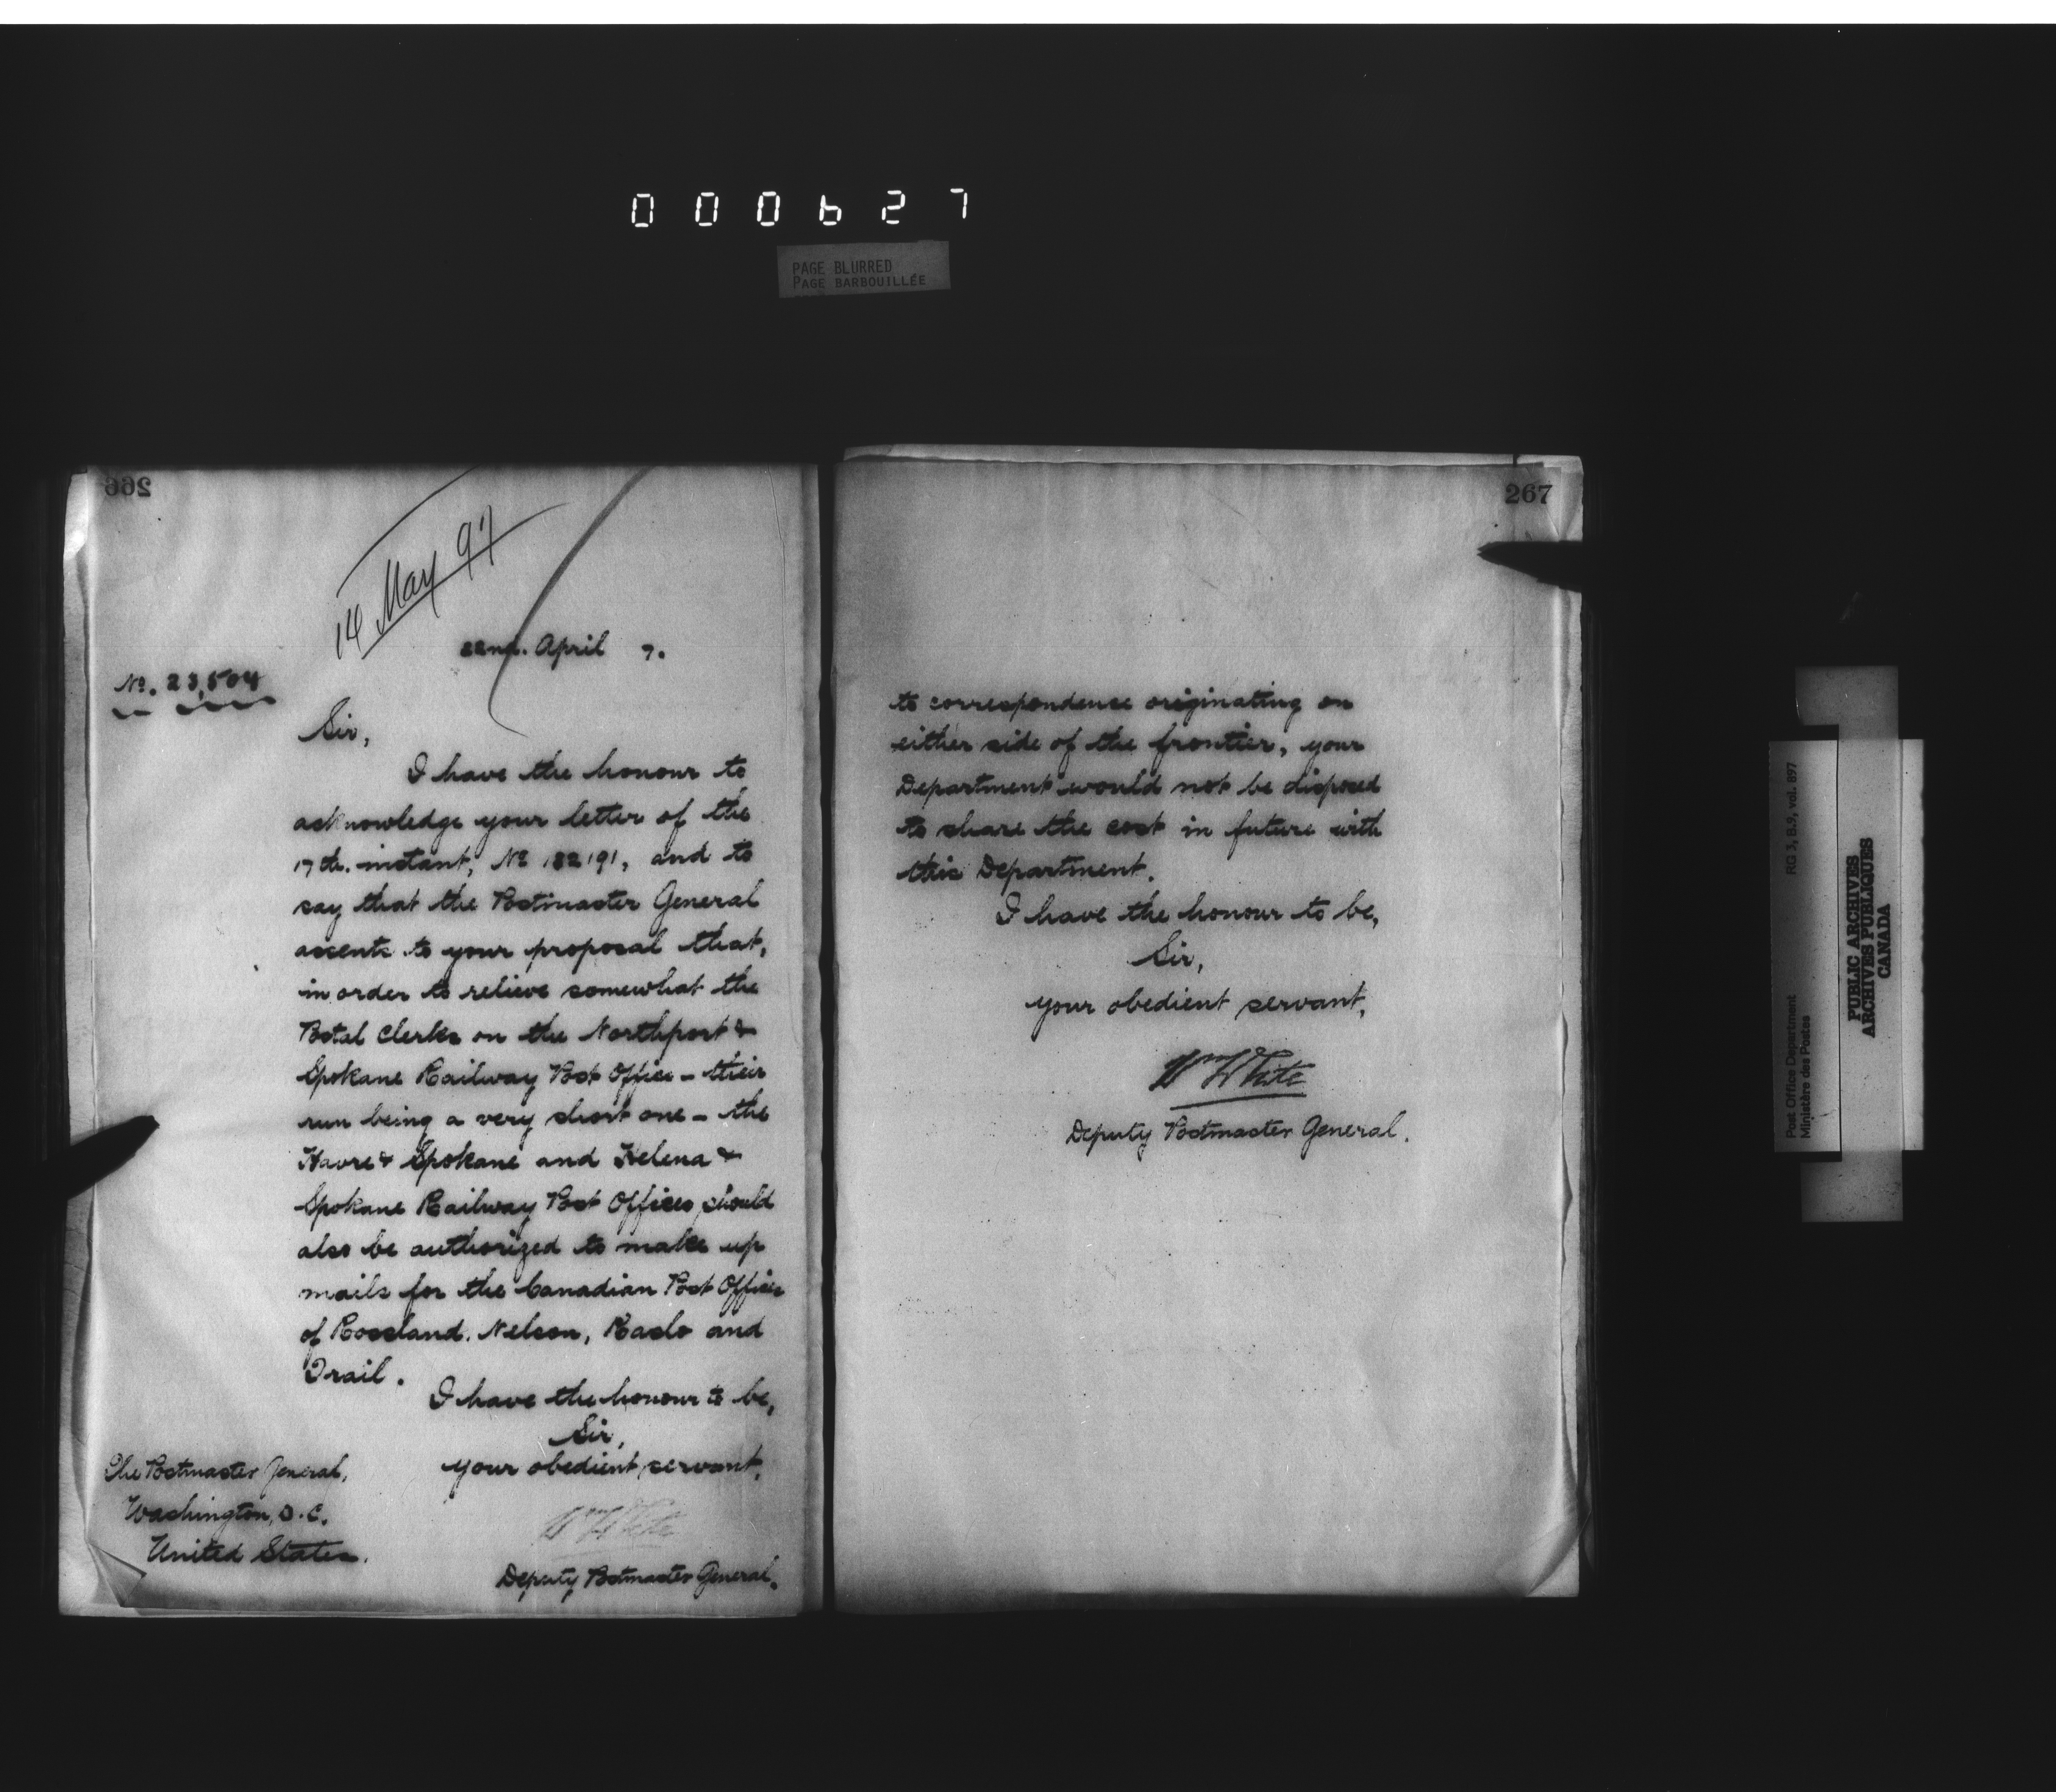 000627
PAGE BLURRED
PAGE BARBOUILLÉE
266
14 May 97
22nd. April 7.
No. 23,504
Sir,
I have the honour to
acknowledge your letter of the
17th. instant, No 182191, and to
say that the Postmaster General
assents to your proposal that,
in order to relieve somewhat the
Postal Clerks on the Northport &
Spokane Railway Post Office - their
run being a very short one - the
Havre & Spokane and Helena &
Spokane Railway Post Offices should
also be authorized to make up
mails for the Canadian Post Offices
of Rossland. Nelson, Kaslo and
Trail.
I have the honour to be,
Sir,
your obedient servant,
Wm White
Deputy Postmaster General.
The Postmaster General,
Washington, D.C.
United States.
267
to correspondence originating on
either side of the frontier, your
Department would not be disposed
to share the cost in future with
this Department.
I have the honour to be,
Sir,
your obedient servant,
Wm White
Deputy Postmaster General.
Post Office Department
Ministère des Postes
RG 3, B.9, vol. 897
PUBLIC ARCHIVES
ARCHIVES PUBLIQUES
CANADA